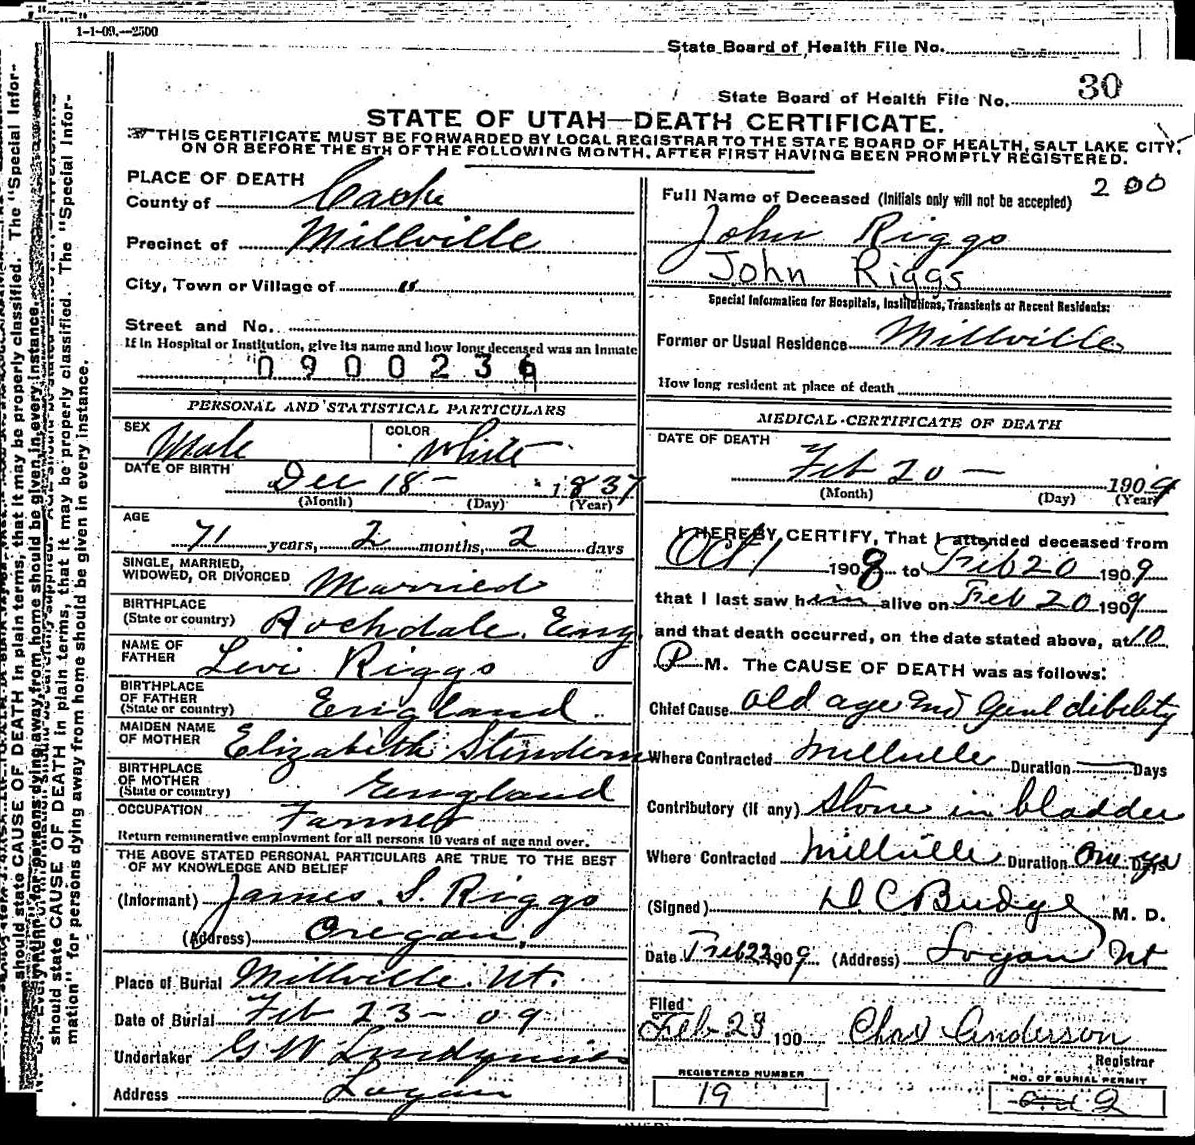 1-1-09.—2500
State Board of Health File No.
State Board of Health File No. 30
STATE OF UTAH—DEATH CERTIFICATE.
THIS CERTIFICATE MUST BE FORWARDED BY LOCAL REGISTRAR TO THE STATE BOARD OF HEALTH, SALT LAKE CITY,
ON OR BEFORE THE 5TH OF THE FOLLOWING MONTH, AFTER FIRST HAVING BEEN PROMPTLY REGISTERED.
PLACE OF DEATH
County of Cache
Precinct of Millville
City, Town or Village of "
Street and No.
If in Hospital or Institution, give its name and how long deceased was an Inmate
0900236
PERSONAL AND STATISTICAL PARTICULARS
SEX Male COLOR White
DATE OF BIRTH Dec 18 - 1837
(Month) (Day) (Year)
AGE
71 years, 2 months, 2 days
SINGLE, MARRIED,
WIDOWED, OR DIVORCED Married
BIRTHPLACE
(State or country) Rochdale, Eng.
NAME OF
FATHER Levi Riggs
BIRTHPLACE
OF FATHER
(State or country) England
MAIDEN NAME
OF MOTHER Elizabeth
BIRTHPLACE
OF MOTHER
(State or country) England
OCCUPATION Farmer
Return remunerative employment for all persons 10 years of age and over.
THE ABOVE STATED PERSONAL PARTICULARS ARE TRUE TO THE BEST
OF MY KNOWLEDGE AND BELIEF
(Informant) James S. Riggs
(Address) Oregon,
Place of Burial Millville Ut.
Date of Burial Feb 23 - 09
Undertaker G W
Address Logan
200
Full Name of Deceased (Initials only will not be accepted)
John Riggs
John Riggs
Special Information for Hospitals, Institutions, Transients or Recent Residents:
Former or Usual Residence Millville
How long resident at place of death
MEDICAL CERTIFICATE OF DEATH
DATE OF DEATH
Feb 20 — 1909
(Month) (Day) (Year)
I HEREBY CERTIFY, That I attended deceased from
Oct 1 1908 to Feb 20 1909
that I last saw him alive on Feb 20 1909
and that death occurred, on the date stated above, at 10
P M. The CAUSE OF DEATH was as follows:
Chief Cause old age and Genl dibility
Where Contracted Millville Duration — Days
Contributory (if any) Stone in bladder
Where Contracted Millville Duration One yr Days
(Signed) D C Budge M. D.
Date Feb 22 1909 (Address) Logan Ut
Filed
Feb 28 190 Chas Anderson
Registrar
REGISTERED NUMBER
19
NO. OF BURIAL PERMIT
2
should state CAUSE OF DEATH in plain terms, that it may be properly classified. The "Special Infor-
mation" for persons dying away from home should be given in every instance.